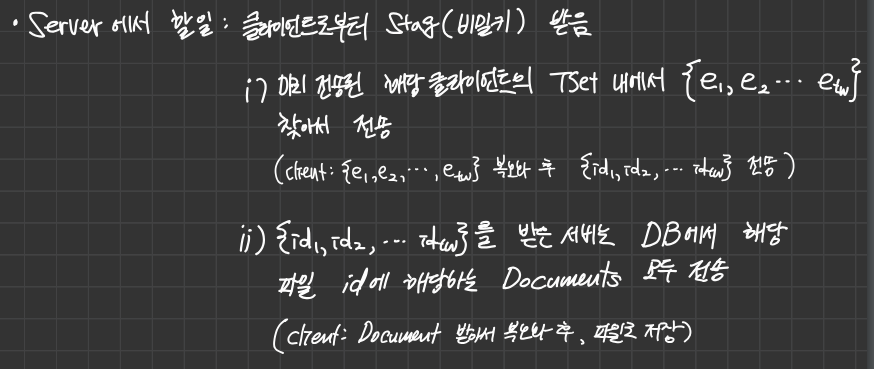 • Server에서 할일 : 클라이언트로부터 Stag(비밀키) 받음
i) 미리 전송된 해당 클라이언트의 TSet 내에서 {e₁, e₂ ... e_tw}
찾아서 전송
(client: {e₁, e₂, ..., e_tw} 복호화 후 {id₁, id₂, ... id_tw} 전송)
ii) {id₁, id₂, ... id_tw}를 받은 서버는 DB에서 해당
파일 id에 해당하는 Documents 모두 전송
(client: Document 받아서 복호화 후, 파일로 저장)